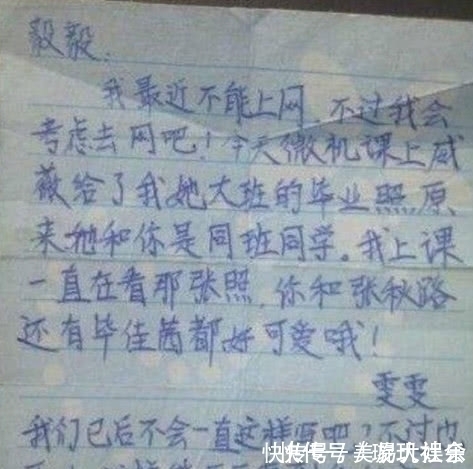 毅毅:
我最近不能上网,不过我会
考虑去网吧!今天微机课上戚
薇给了我她大班的毕业照原
来她和你是同班同学。我上课
一直在看那张照,你和张秋路
还有毕佳茵都好可爱哦!
雯雯
我们已后不会一直这样
快传号